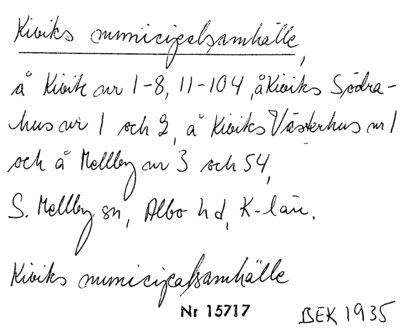 Kiviks municipalsamhälle,
å Kivik nr 1-8, 11-104, å Kiviks Södra-
hus nr 1 och 2, å Kiviks Västerhus nr 1
och å Mellby nr 3 och 54,
S. Mellby sn, Albo hd, K-län.
Kiviks municipalsamhälle
Nr 15717 BEK 1935